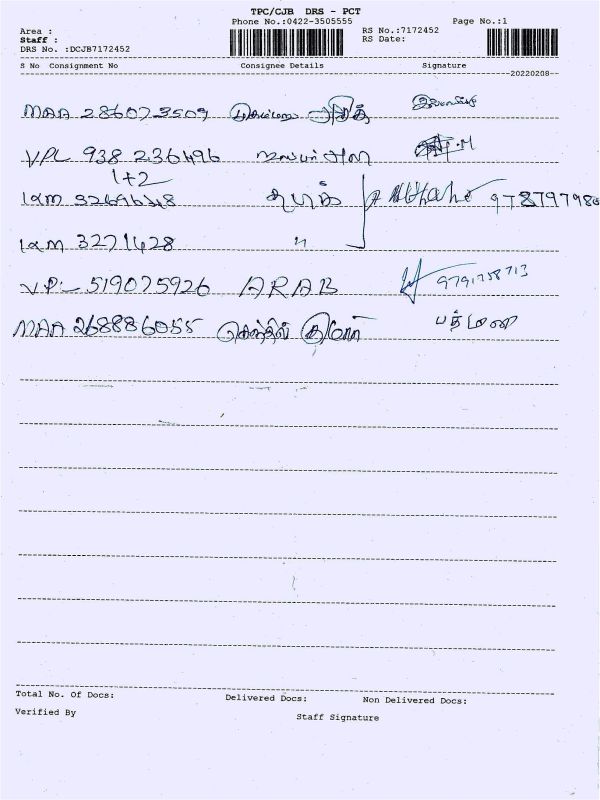 TPC/CJB DRS - PCT
Phone No.:0422-3505555 Page No.:1
Area :
Staff :
DRS No. :DCJB7172452
RS No.:7172452
RS Date:
S No Consignment No Consignee Details Signature
20220208
MAA 286073509
VPL 938236496
1+2
IXM 3269648
IXM 3271428 "
VPL 519075926 ARAB 9791758713
MAA 268886055 செந்தில் குமார் பத்மனா
Total No. Of Docs: Delivered Docs: Non Delivered Docs:
Verified By Staff Signature